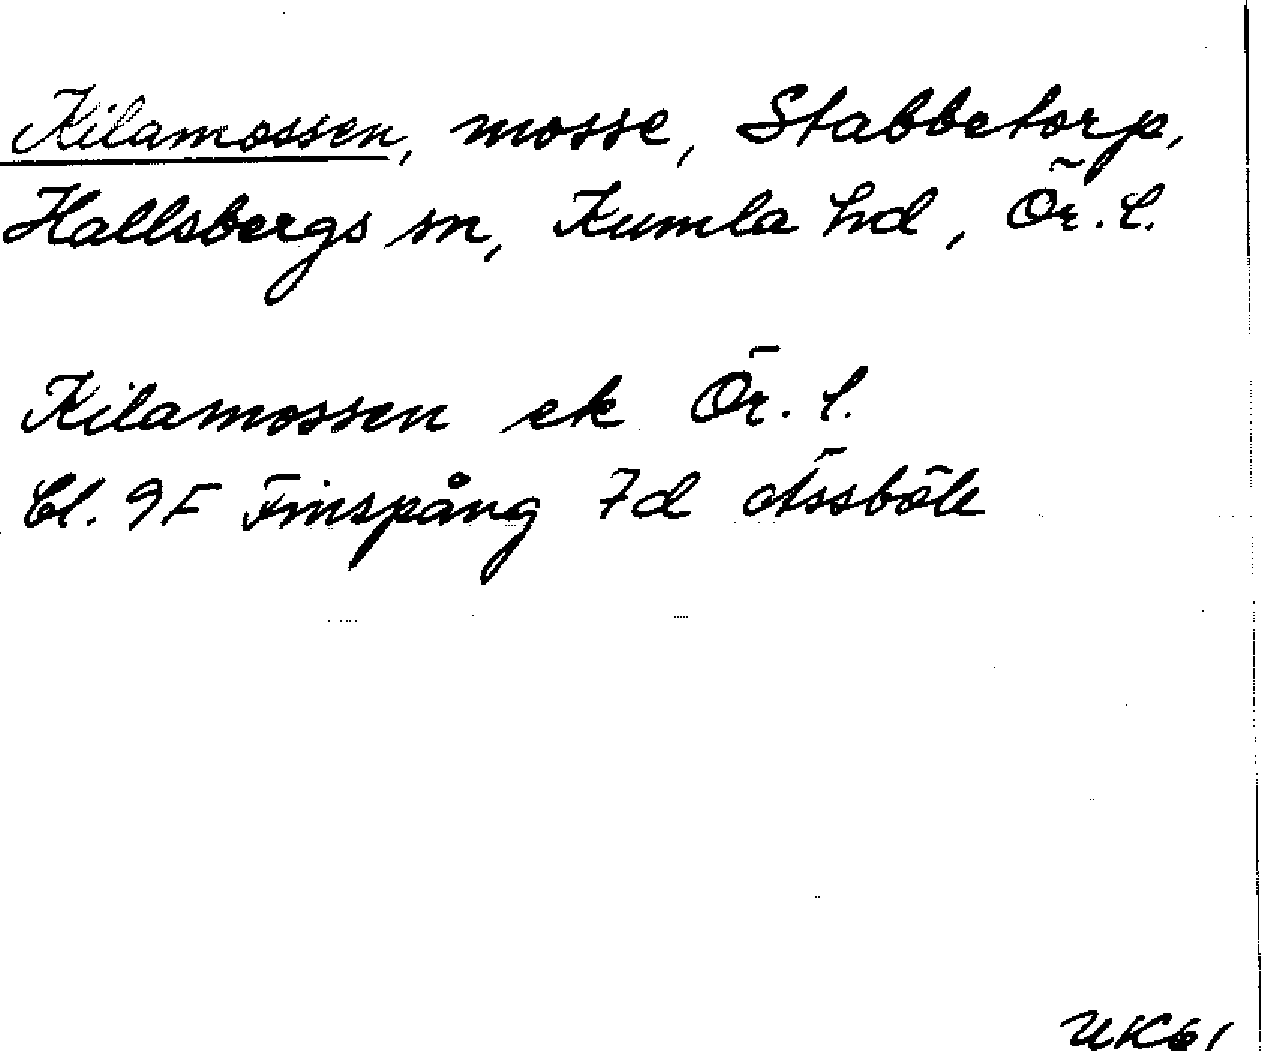 Kilamossen, mosse, Stabbetorp,
Hallsbergs sn, Kumla hd, Ör. l.
Kilamossen ek Ör. l.
bl. 9F Finspång 7d Åssböle
UK61